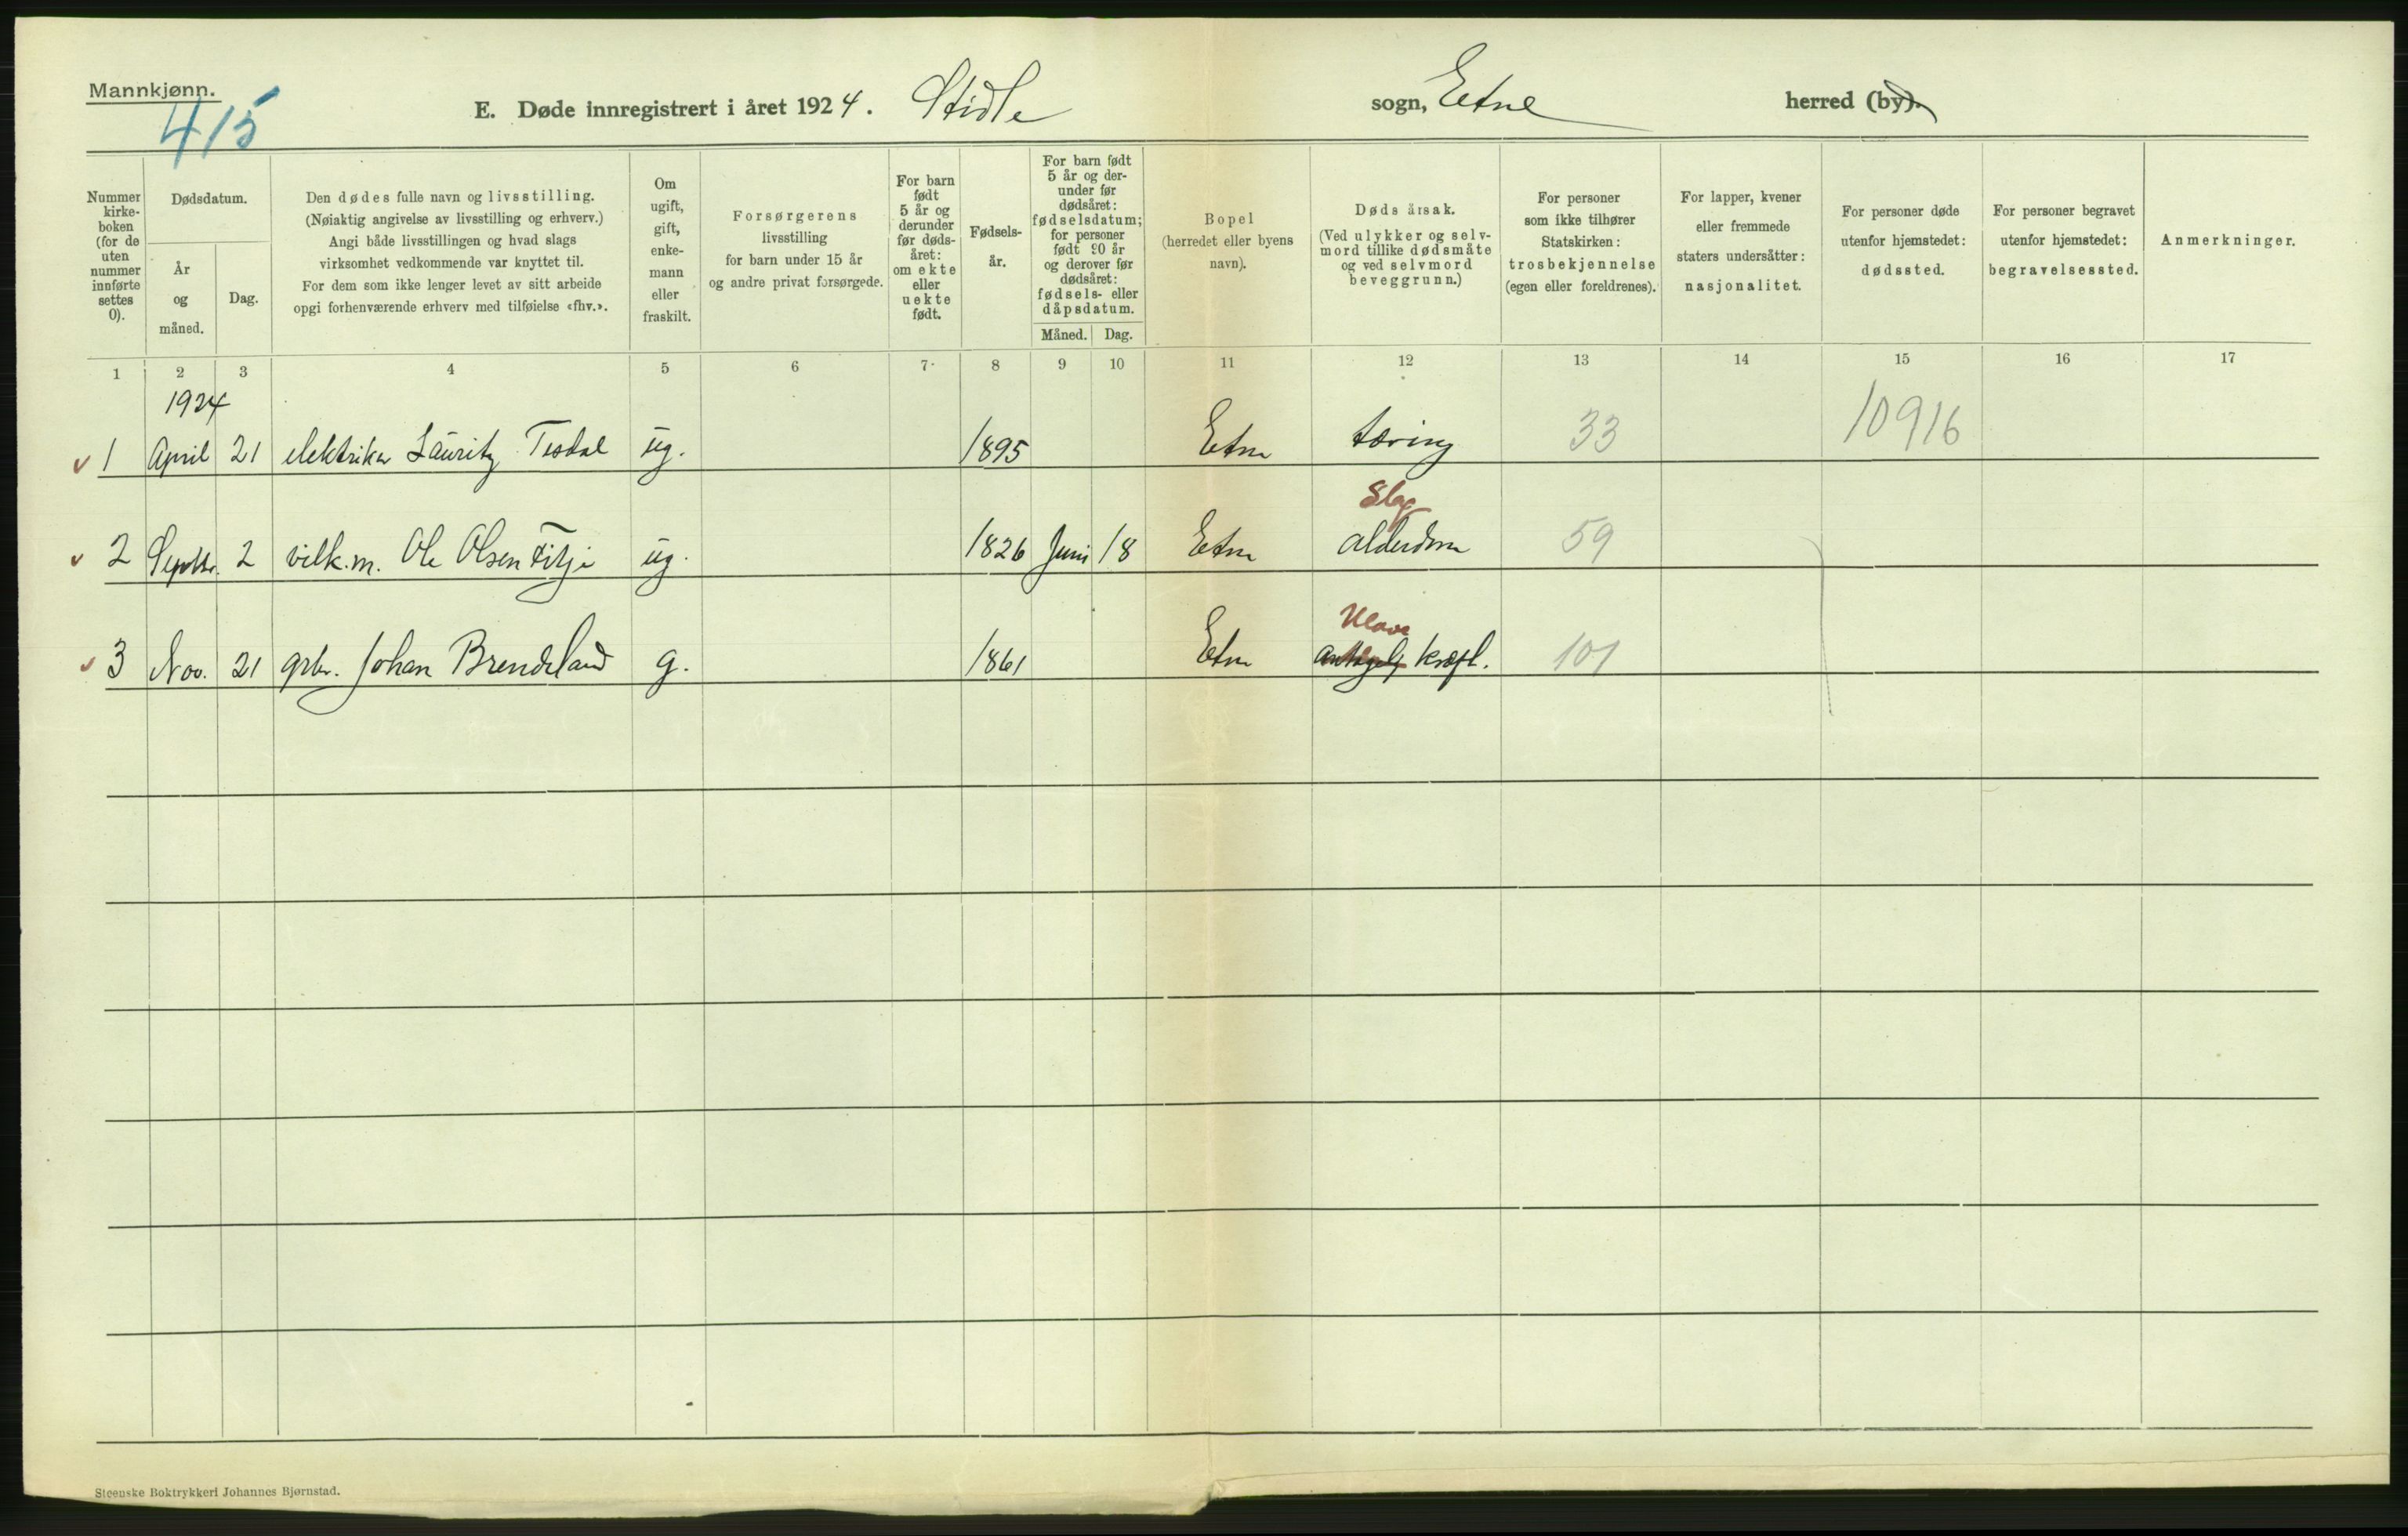 Mannkjønn.
415
E. Døde innregistrert i året 1924. Stidle sogn, Etne herred (by).
Nummer kirkeboken (for de uten nummer innførte settes 0).
Dødsdatum.
År og måned.
Dag.
Den dødes fulle navn og livsstilling.
(Nøiaktig angivelse av livsstilling og erhverv.)
Angi både livsstillingen og hvad slags
virksomhet vedkommende var knyttet til.
For dem som ikke lenger levet av sitt arbeide
opgi forhenværende erhverv med tilføielse «fhv.».
Om ugift, gift, enkemann eller fraskilt.
Forsørgerens
livsstilling
for barn under 15 år
og andre privat forsørgede.
For barn født 5 år og derunder før dødsåret: om ekte eller uekte født.
Fødselsår.
For barn født 5 år og derunder før dødsåret: fødselsdatum; for personer født 90 år og derover før dødsåret: fødsels- eller dåpsdatum.
Måned. Dag.
Bopel
(herredet eller byens
navn).
Dødsårsak.
(Ved ulykker og selvmord tillike dødsmåte og ved selvmord beveggrunn.)
For personer
som ikke tilhører
Statskirken:
trosbekjennelse
(egen eller foreldrenes).
For lapper, kvener
eller fremmede
staters undersåtter:
nasjonalitet.
For personer døde
utenfor hjemstedet:
dødssted.
For personer begravet
utenfor hjemstedet:
begravelsessted.
Anmerkninger.
1 2 3 4 5 6 7 8 9 10 11 12 13 14 15 16 17
1924
v 1 April 21 elektriker Lauritz Tesdal ug. 1895 Etne tæring 33 10916
Slag
v 2 Septbr. 2 vilk.m. Ole Olsen Fitje ug. 1826 Juni 18 Etne alderdom 59
v 3 Nov. 21 grbr. Johan Brendeland g. 1861 Etne antagelig kræft. 101
Steenske Boktrykkeri Johannes Bjørnstad.